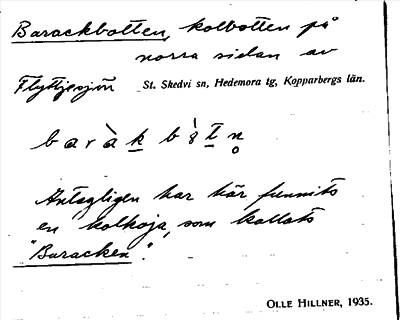 Barackbotten, kolbotten på
norra sidan av
Flyttjesjön St. Skedvi sn, Hedemora tg, Kopparbergs län.
baràk b
Antagligen har här funnits
en kolkoja, som kallats
"Baracken".
OLLE HILLNER, 1935.